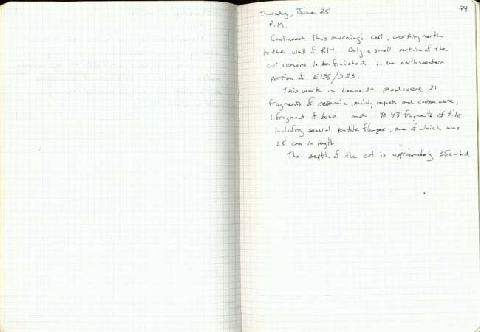 Thursday, June 25
79
P.M.
Continued this morning's cut, working north
to the wall of R14. Only a small portion of the
cut remains to be finished, in the northwestern
portion of
This work in produced 21
fragments of ceramic, mainly and coarse ware,
1 fragment of bone and fragments of tile
including several possible flanges, one of which was
25 cm in length
The depth of the cut is approximately 55cm